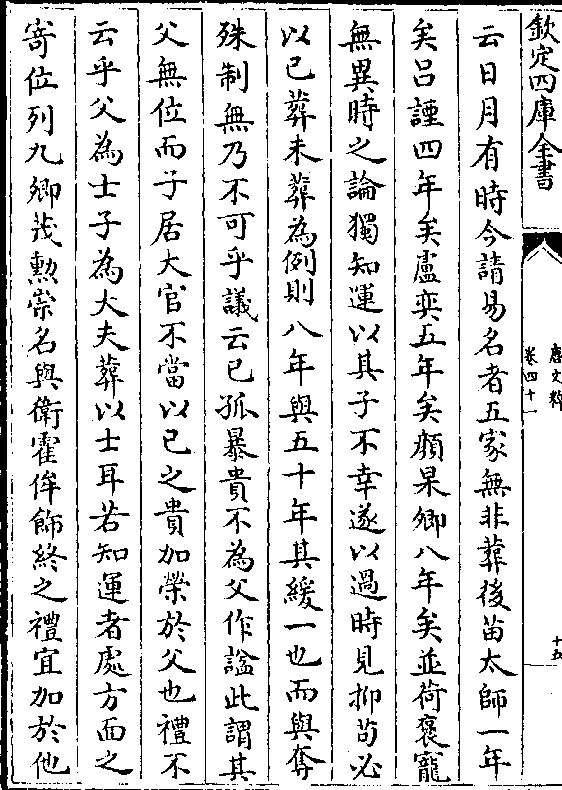 欽定四庫全書
唐文粹
卷四十一
十五
云日月有時今請易名者五家無非葬後苗太師一年
矣吕諲四年矣盧奕五年矣顔杲卿八年矣並荷褒寵
無異時之論獨知運以其子不幸遂以過時見抑苟必
以已葬未葬為例則八年與五十年其緩一也而與奪
殊制無乃不可乎議云已孤暴貴不為父作諡此謂其
父無位而子居大官不當以己之貴加榮於父也禮不
云乎父為士子為大夫葬以士耳若知運者處方面之
寄位列九卿茂勲崇名與衛霍侔飾終之禮宜加於他